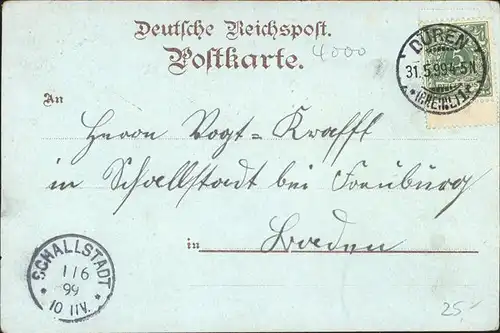 Deutsche Reichspost.
Postkarte.
4000
DÜREN
31.5.99.4-5N.
* (RHEINL.) *
An
Herrn Vogt-Krafft
in Schallstadt bei Freiburg
in Baden
SCHALLSTADT
1/6
99
10 11V.
25,-